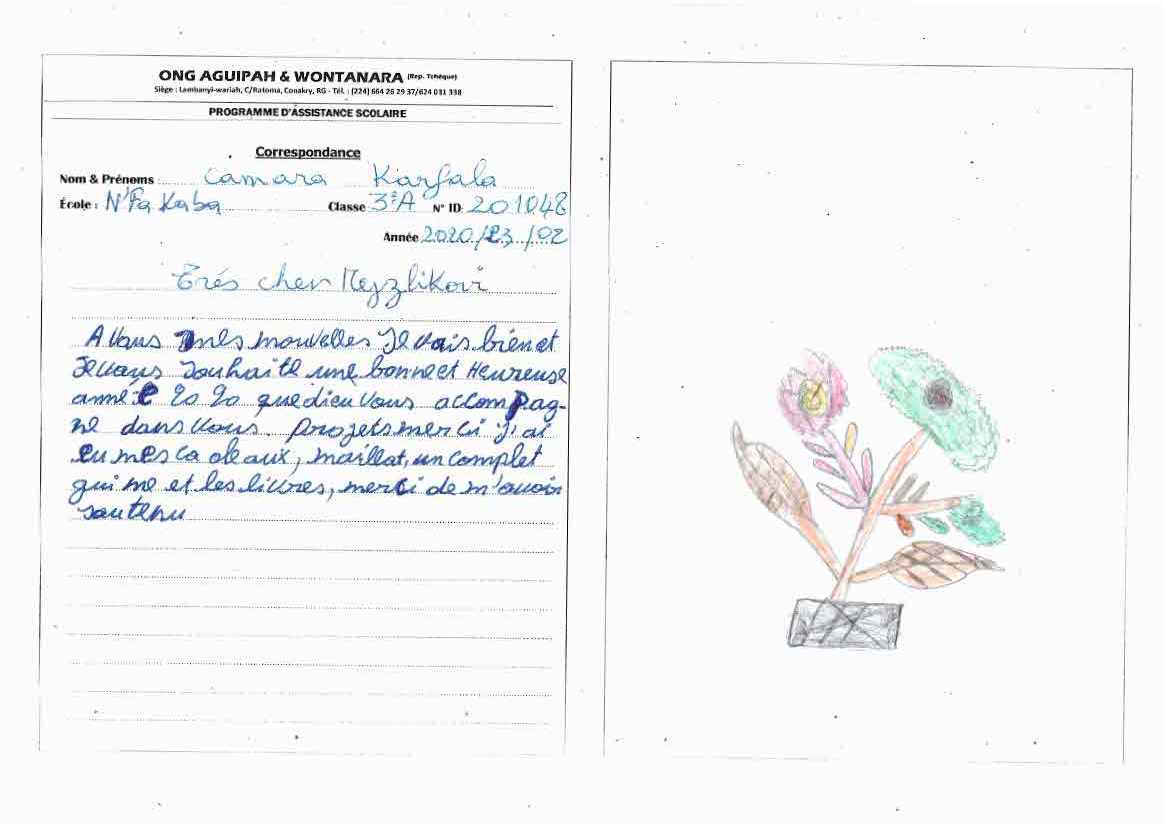 ONG AGUIPAH & WONTANARA (Rep. Tchèque)
Siège : Lambanyi-wariah, C/Ratoma, Conakry, RG - Tél. : (224) 664 26 29 37/624 031 338
PROGRAMME D'ASSISTANCE SCOLAIRE
Correspondance
Nom & Prénoms : Camara Karfala
École : N'Fa Kaba Classe 3è A N° ID: 201048
Année 2020/23/02
Trés cher Mejzlikovi
A vous mes mouvelles Je vais bien et
Je vous souhaite une bonne et Heureuse
anné 20 20 que dieu vous accompag-
ne dans vous projets merci J'ai
eu mes ca deaux, maillat, un complet
qui me et les livres, merci de m'avoir
soutenu